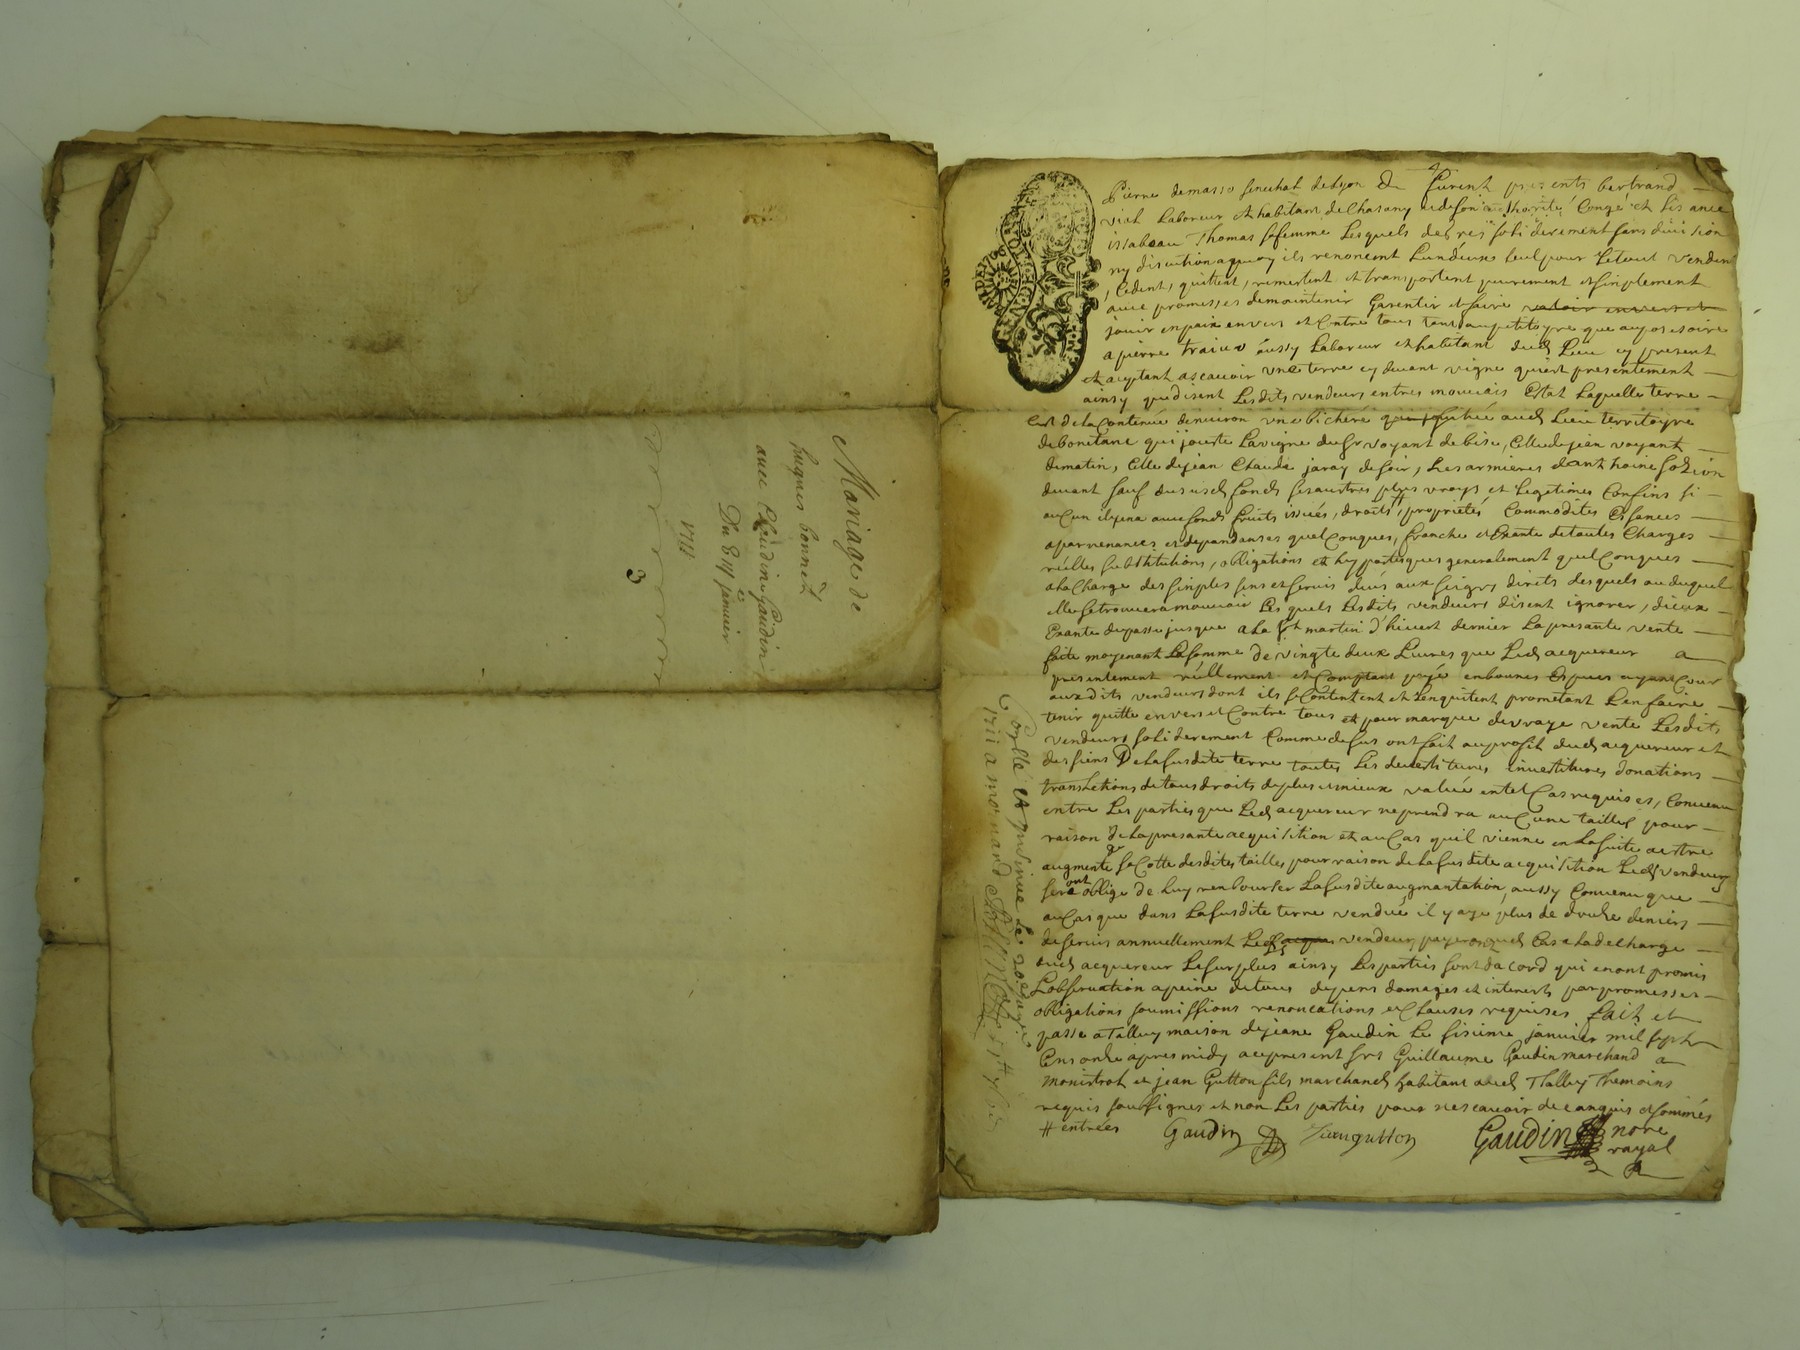 Mariage de
hugues bonnet
avec Claudine Gaudin
Du janvier
3
Pierre demasso senechal de Lyon En furent presents bertrand
vial Laboreur et habitant de Chasany et de son authorité Congé et Lisance
issabeau Thomas sa femme Lesquels de gré solidairement sans division
ny discution a quoy ils renoncent L'un d'eux seul pour Le tout vendent
, Cedent, quittent, remettent et transportent purement et simplement
avec promesses de maintenir Garentir et faire valoir envers et
jouir en paix envers et Contre tous tant au petitoyre que au possessoire
a pierre traive aussy Laboreur et habitant dud Lieu cy present
et acceptant ascavoir une terre cy devant vigne qui est presentement
ainsy que disent Lesdits vendeurs en tres mauvais Estat Laquelle terre
est de la Contenue d'environ une bicheré située aud Lieu territoyre
de bonetane qui jouste La vigne du Sr voyant de bise, Celle de jean voyant
de matin, Celle de jean Claude jaray de soir, Les armieres d'anthoine
devant sauf dud fonds ses austres plus vrays et Legitimes Confins si
aucun il y en a avec ses fonds fruits issues, droits, # proprietés Commodités Essances
apartenances et dependanses quelConques, franche et Exante de toutes Charges
réelles substitutions, obligations et hyppotesques generalement quelConques
a la Charge des simples sens et servis dués aux seigrs directs desquels ou duquel
elle se trouvera mouvoir Lesquels Lesdits vendeurs disent ignorer, d'iceux
Exante du passé jusques a La St martin d'hivert dernier La presante vente
faite moyenant La somme de vingte deux Livres que Led acquereur a
presentement réellement et Comptant payé en bonnes Espces ayant Cour
auxdits vendeurs dont ils se Contentent et L'en quitent prometant L'en faire
tenir quitte envers et Contre tous et pour marque de vraye vente Lesdits
vendeurs solidairement Comme de sus ont fait au profit dud acquereur et
des siens De La susdite terre toutes Les devestitures, investitures donations
translations de tous droits de plus et mieux value en tel Cas requises, Convenu
entre Les parties que Led acquereur ne prendra aucune tailles pour
raison de La presante acquisition et au Cas qu'il vienne en La suite a estre
augmenté sa Cotte desdites tailles pour raison de La susdite acquisition Lesd vendeurs
seront obligé de Luy renbourser La susdite augmantation, aussy Convenu que
au Cas que dans La susdite terre vendue, il y aye plus de douhe deniers
de servis annuellement Led acque vendeur payeront aud Cas a La decharge
dud acquereur Le surplus ainsy Les parties sont d'acord qui en ont promis
L'observation a peine de tous depens domages et interests par promesses
obligations soumissions renonciations et Clauses requises fait et
passé a Talluy maison de jeane Gaudin Le sisieme janvier mil sept
Cens onhe apres midy acpresent srs Guillaume Gaudin marchand a
monistrol et jean Gutton fils marchand habitant aud Thalluy Themoins
requis soussignes et non Les parties pour ne scavoir de ce anquis et sommés
# entrées
Gaudin
Jeangutton
Gaudin nore
royal
Conllé et insinué Le 20e janvie
1711 a mornand